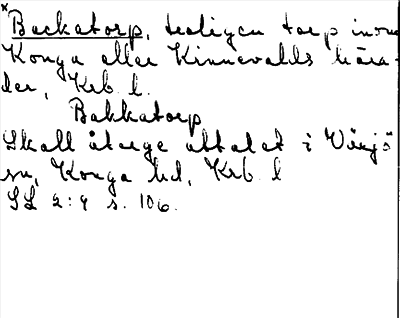 *Backatorp, troligen torp inom
Konga eller Kinnevalds hära-
der, Krb. l.
Bakkatorp
Skall återge uttalet i Växjö
sn, Konga hd, Krb. l
SL 2:9 s. 106.